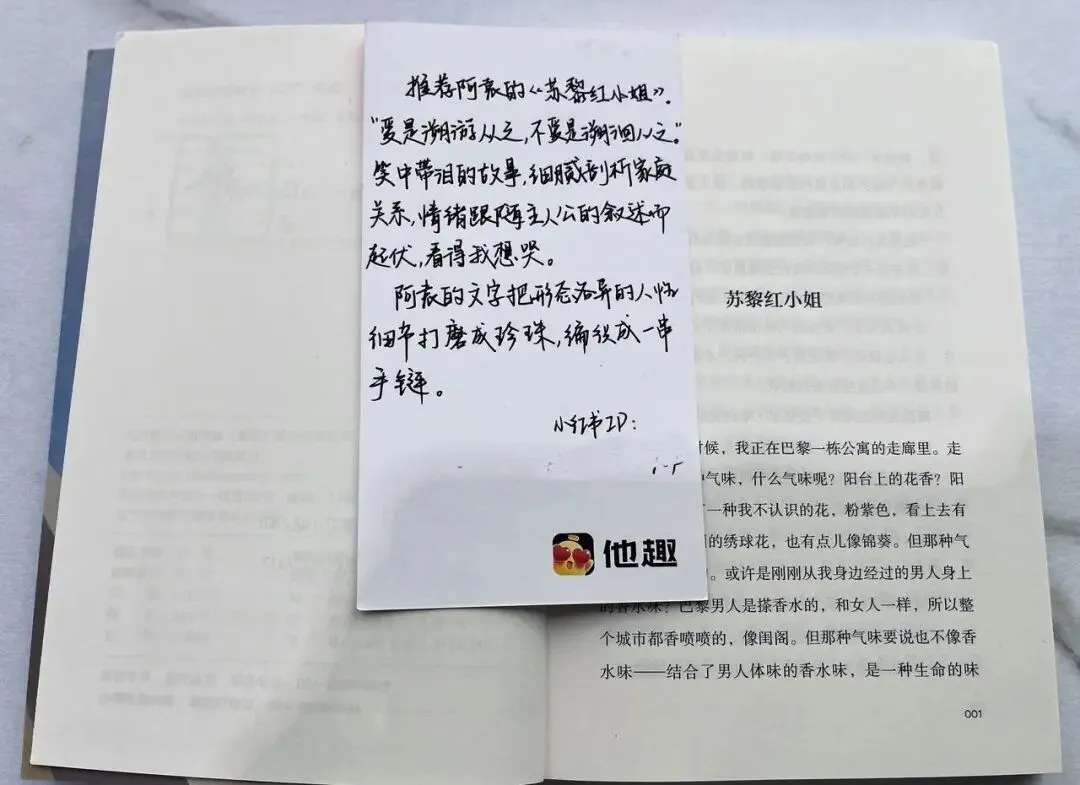 推荐阿袁的《苏黎红小姐》。
"爱是溯游从之,不爱是溯洄从之。"
笑中带泪的故事,细腻剖析家庭
关系,情绪跟随主人公的叙述而
起伏,看得我想哭。
阿袁的文字把形态各异的人性
细节打磨成珍珠,编织成一串
手链。
小红书ID:
他趣
苏黎红小姐
时候,我正在巴黎一栋公寓的走廊里。走
气味,什么气味呢?阳台上的花香?阳
一种我不认识的花,粉紫色,看上去有
的绣球花,也有点儿像锦葵。但那种气
。或许是刚刚从我身边经过的男人身上
的香水味?巴黎男人是搽香水的,和女人一样,所以整
个城市都香喷喷的,像闺阁。但那种气味要说也不像香
水味——结合了男人体味的香水味,是一种生命的味
001